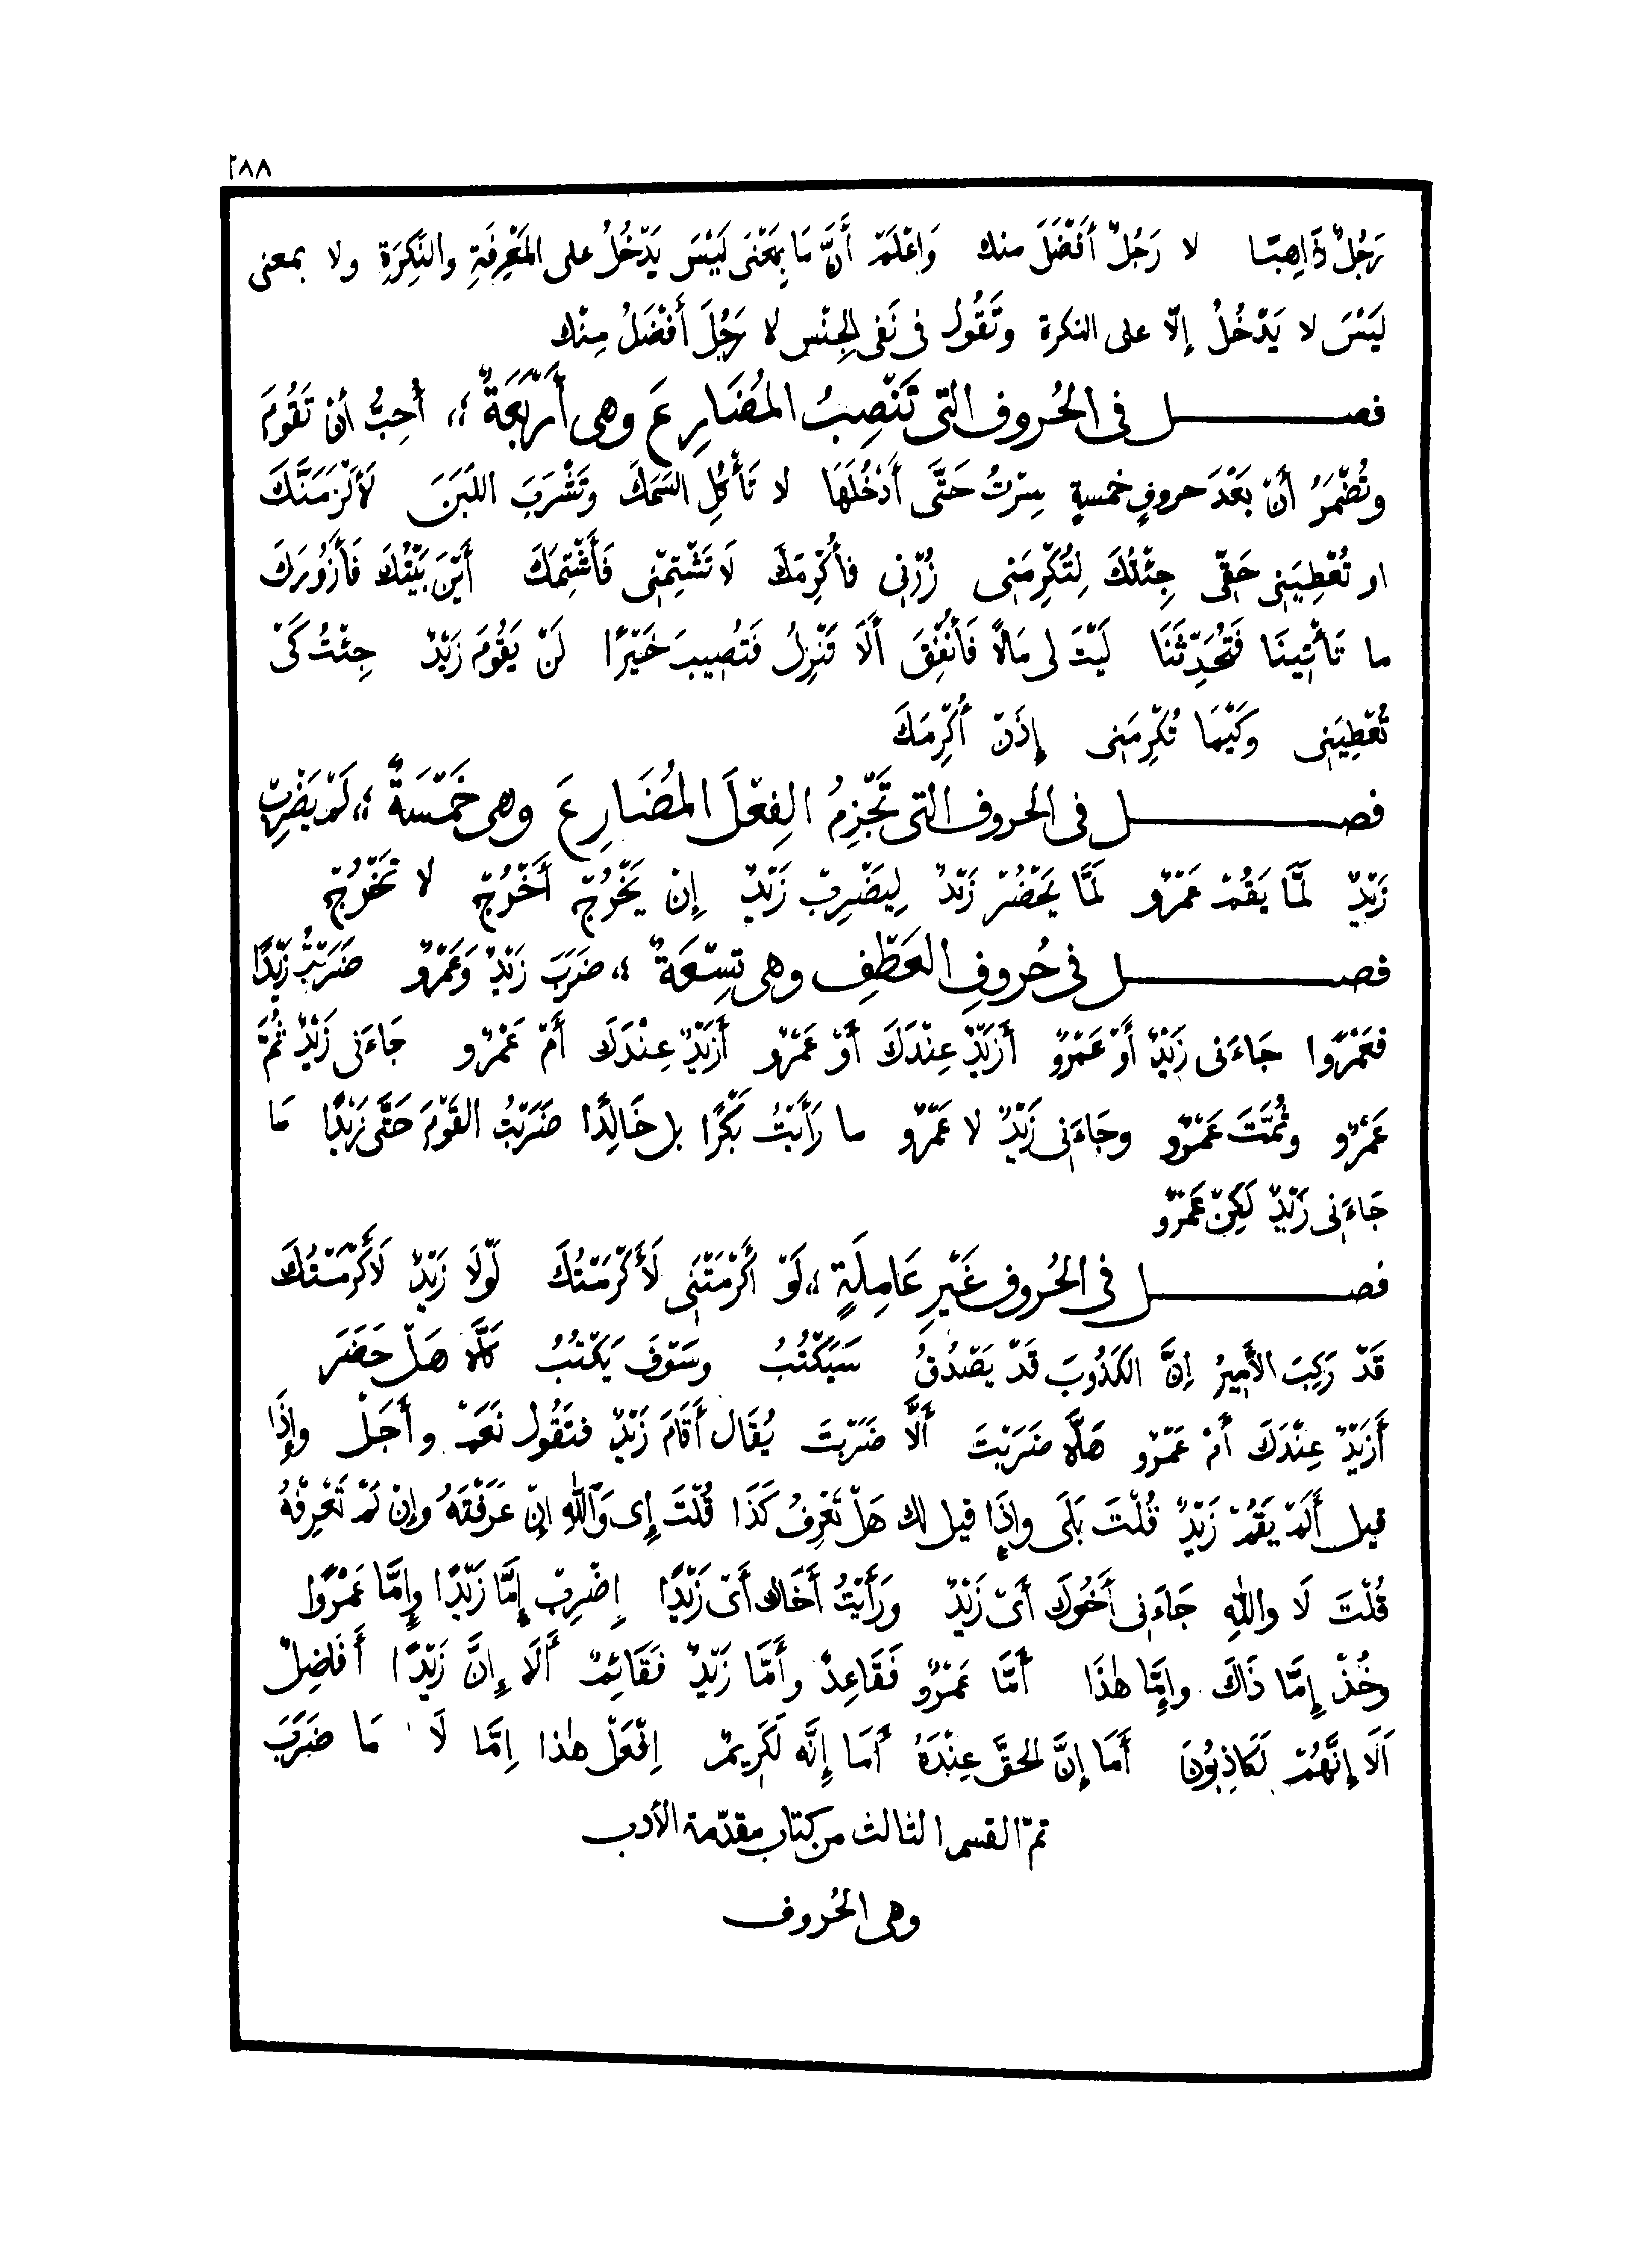 ٢٨٨
رَجُلٌ ذَاهِبًا لا رَجُلٌ أَفْضَلَ منك وَاعْلَمْ أَنَّ مَا بِمَعْنَى لَيْسَ يَدْخُلُ على المَعْرِفَةِ والنَّكِرَةِ ولا بمعنى
لَيْسَ لا يَدْخُلُ إلّا على النكرة وتَقُول فى نَفى الجِنْسِ لا رَجُلَ أَفْضَلُ مِنْك
فصل فى الحُروف التى تَنْصِبُ المُضَارِعَ وهى أَرْبَعَةٌ ؛؛ أُحِبُّ أنْ تَقُومَ
وتُضْمَرُ أَنْ بَعْدَ حروفٍ خمسةٍ سِرْتُ حَتَّى أَدْخُلَهَا لا تَأْكُلِ السَمَكَ وتَشْرَبَ اللَبَنَ لَأَلْزَمَنَّكَ
او تُعْطِيَنِى حَقِّى جِئْتُكَ لِتُكْرِمَنِى زُرْنِى فأُكْرِمَكَ لَا تَشْتِمْنِى فَأَشْتِمَكَ أَيْنَ بَيْتُكَ فَأَزُورَكَ
ما تَأْتِينَا فَتُحَدِّثَنَا لَيْتَ لى مَالًا فَأُنْفِقَ أَلَا تَنْزِلُ فَتُصِيبَ خَيْرًا لَنْ يَقُومَ زَيْدٌ جِئْتُ كَىْ
تُعْطِيَنِى وكَيْمَا تُكْرِمَنِى إِذَنْ أُكْرِمَكَ
فصل فى الحروف التى تَجْزِمُ الفِعْلَ المُضَارِعَ وهى خَمْسَةٌ ؛؛ لَمْ يَضْرِبْ
زَيْدٌ لَمَّا يَقُمْ عَمْرٌو لَمَّا يَحْضُرْ زَيْدٌ لِيَضْرِبْ زَيْدٌ إِنْ يَخْرُجْ أَخْرُجْ لا تَخْرُجْ
فصل فى حُروفِ العَطْفِ وهى تِسْعَةٌ ؛؛ ضَرَبَ زَيْدٌ وَعَمْرٌو ضَرَبْتُ زَيْدًا
فعَمْرًوا جَاءَنى زَيْدٌ أَوْ عَمْرٌو أَزَيْدٌ عِنْدَكَ أَوْ عَمْرٌو أَزَيْدٌ عِنْدَكَ أَمْ عَمْرٌو جَاءَنى زَيْدٌ ثُمَّ
عَمْرٌو وثُمَّتَ عَمْرٌو وجَاءَنِى زَيْدٌ لا عَمْرٌو ما رَأَيْتُ بَكْرًا بل خَالِدًا ضَرَبْتُ القَوْمَ حَتَّى زَيْدًا مَا
جَاءَنِى زَيْدٌ لَكِنْ عَمْرٌو
فصل فى الحُروف غَيْرِ عَامِلَةٍ ؛؛ لَوْ أَكْرَمْتَنِى لَأَكْرَمْتُكَ لَوْلَا زَيْدٌ لَأَكْرَمْتُكَ
قَدْ رَكِبَ الأَمِيرُ إنَّ الكَذُوبَ قَدْ يَصْدُقُ سَيَكْتُبُ وسَوْفَ يَكْتُبُ كَلَّا هَلْ حَضَرَ
أَزَيْدٌ عِنْدَكَ أمْ عَمْرٌو هَلَّا ضَرَبْتَ أَلَّا ضَرَبْتَ يُقَال أَقَامَ زَيْدٌ فتَقُول نَعَمْ وأَجَلْ وإِذَا
قيل أَلَمْ يَقُمْ زَيْدٌ قُلْتَ بَلَى وإذَا قيل لك هَلْ تَعْرِفُ كَذَا قُلْتَ إِى وَٱللّٰهِ إنْ عَرَفْتَهُ وإنْ لَمْ تَعْرِفْهُ
قُلْتَ لَا واللّٰهِ جَاءَنِى أَخُوكَ أَىْ زَيْدٌ ورَأَيْتُ أَخَاك أَىْ زَيْدًا إضْرِبْ إِمَّا زَيْدًا وإمَّا عَمْرًوا
وخُذْ إِمَّا ذَاكَ وإمَّا هٰذَا أَمَّا عَمْرٌو فَقَاعِدٌ وأَمَّا زَيْدٌ فَقَائِمٌ أَلَا إِنَّ زَيْدًا أَفَاضِلٌ
اَلَا إنَّهُمْ لَكَاذِبُونَ أَمَا إِنَّ الحَقَّ عِنْدَهُ أَمَا إِنَّه لَكَرِيمٌ اِفْعَلْ هٰذا اِمَّا لَا مَا ضَرَبَ
تمّ القسم الثالث من كتاب مقدّمة الأدب
وهى الحُروف